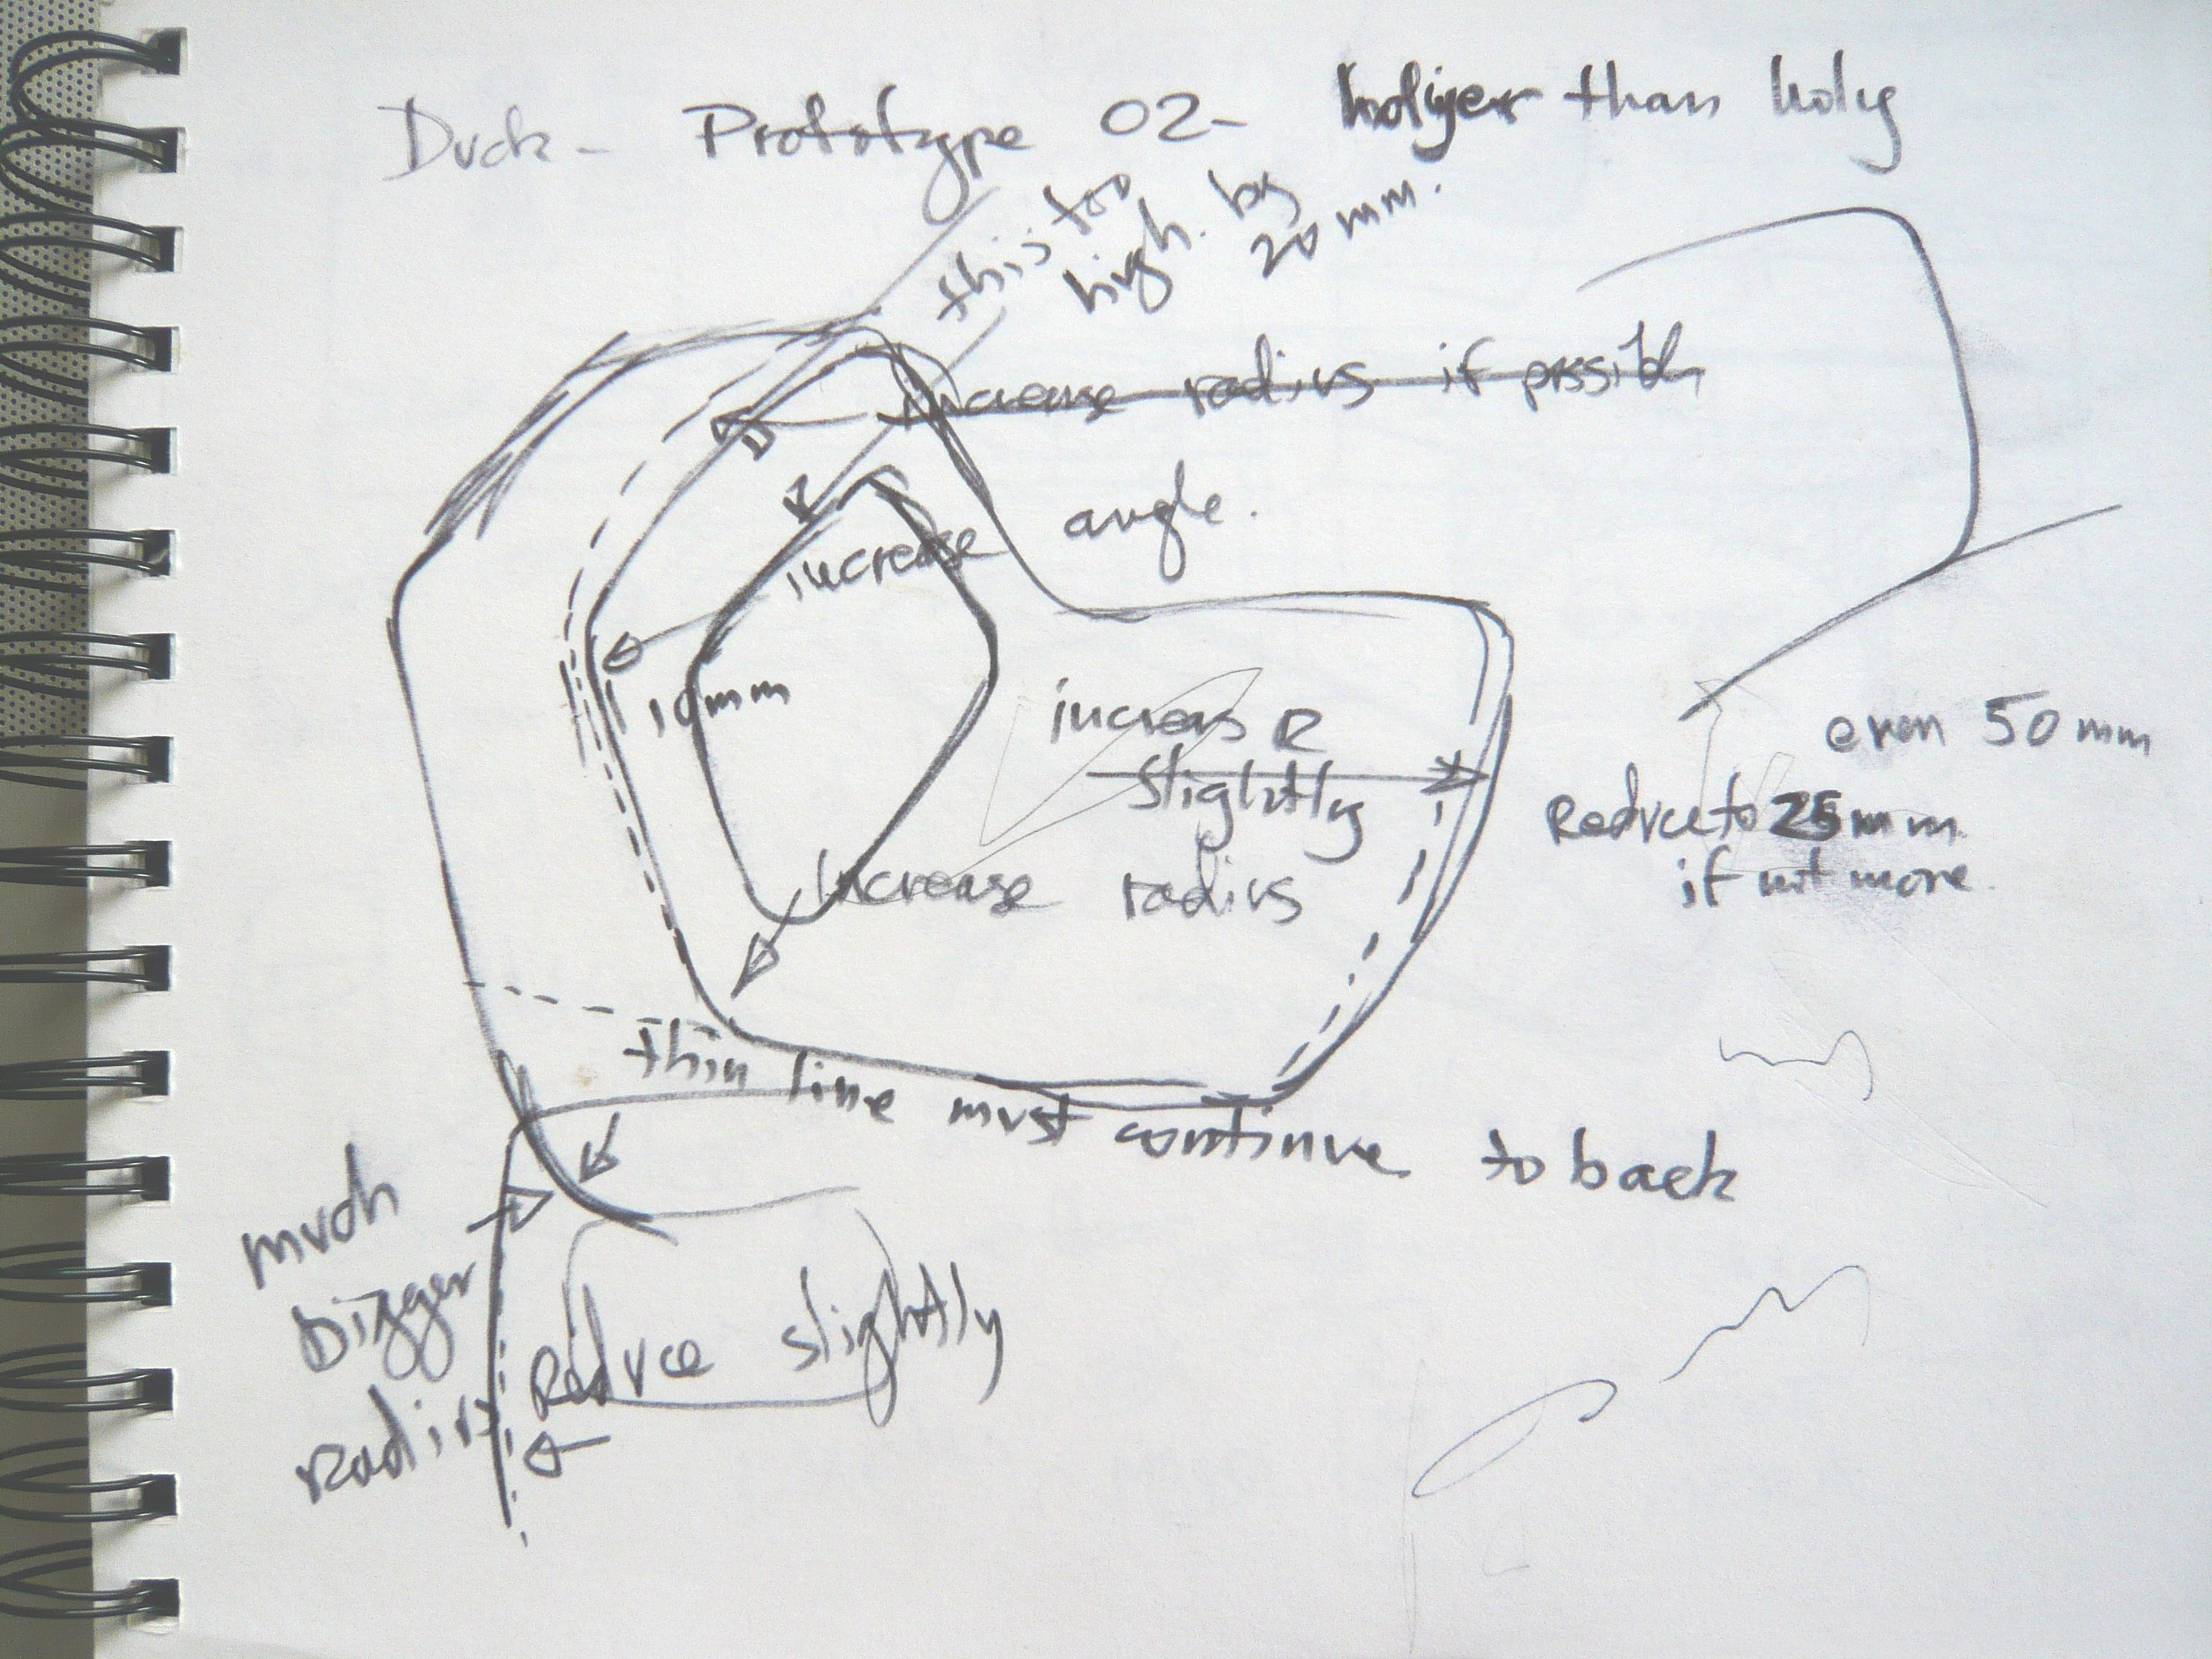 Duck - Prototype 02 - holyer than holy
this too
high. by
20 mm.
increase radius if possible
angle.
increase
10mm
increas R
slightly
even 50 mm
Reduce to 25 mm
if not more.
increase radius
thin line must continue to back
much
bigger
radius
Reduce slightly